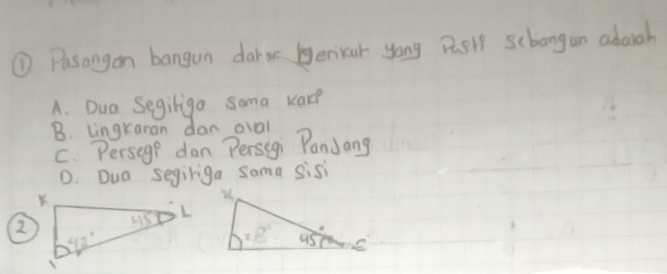 ① Pasangan bangun datar berikut yang Pasti sebangun adalah
A. Dua Segitiga Sama kaki
B. Lingkaran dan oval
C. Persegi dan Persegi Panjang
D. Dua segitiga sama sisi
②
K
45
L
45